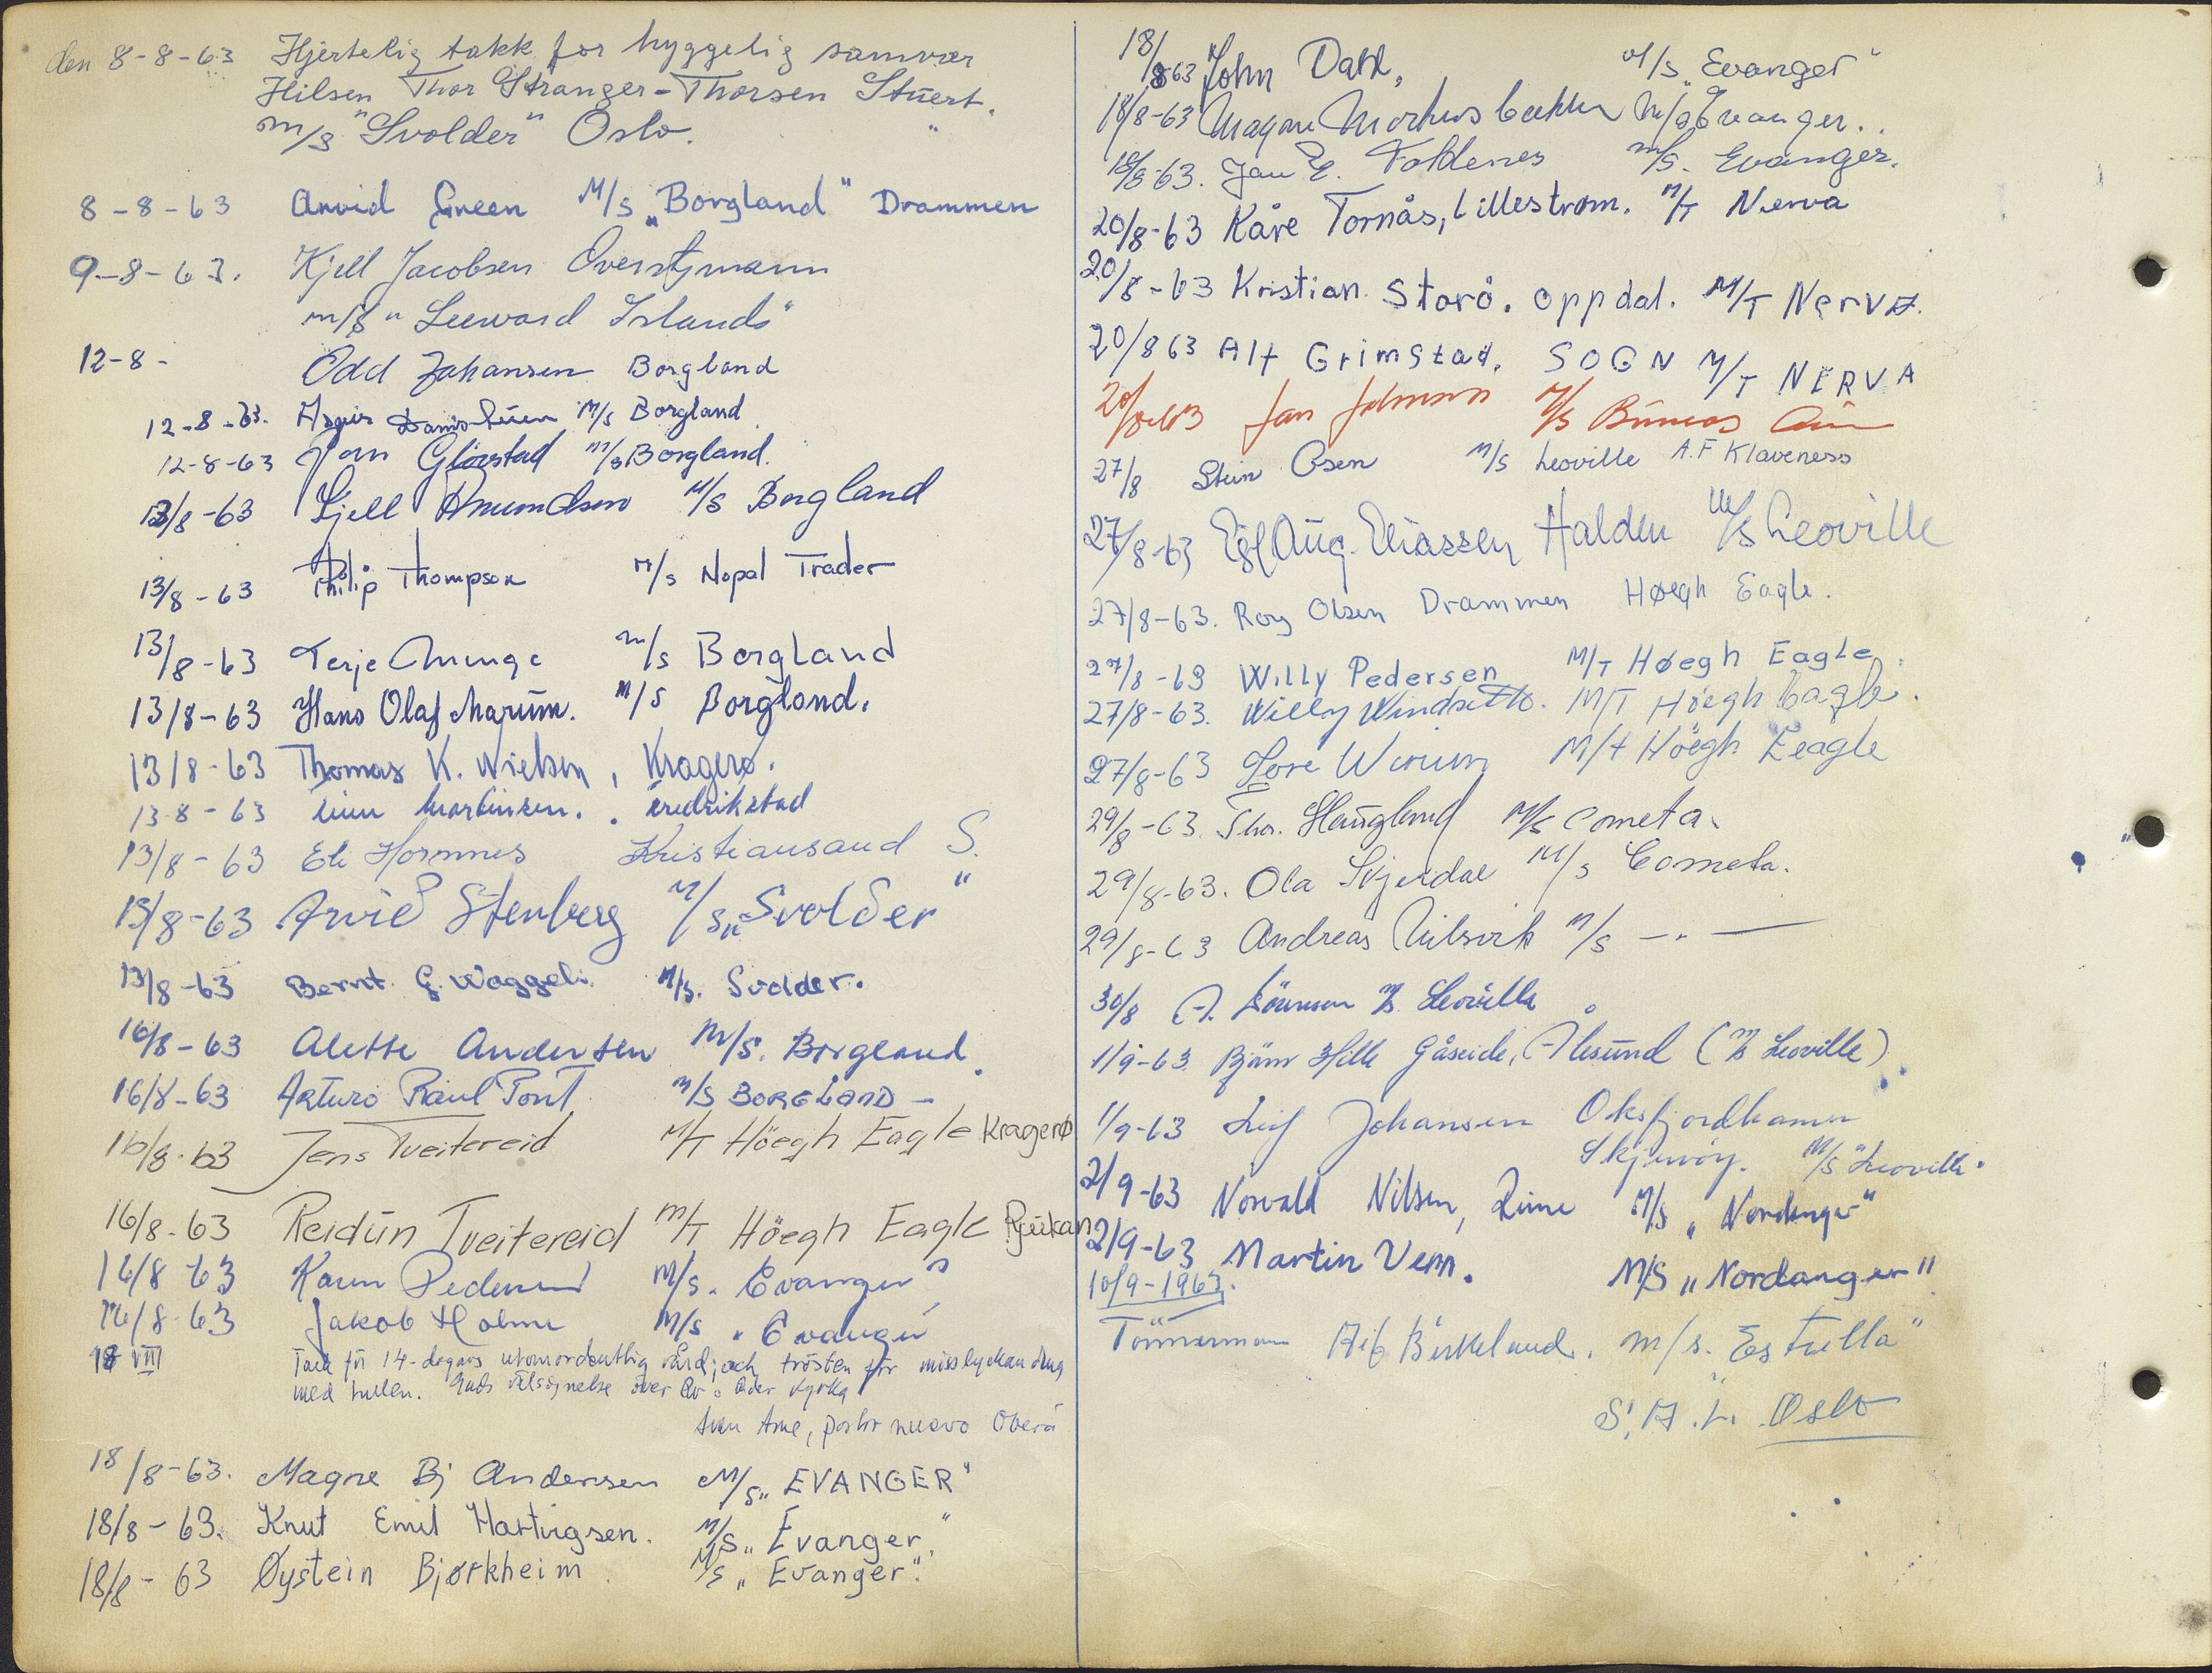 den 8-8-63 Hjertelig takk for hyggelig samvær
Hilsen Thor Stranger-Thorsen Stuert.
m/s "Svolder" Oslo.
8-8-63 Arvid Green M/s „Borgland" Drammen
9-8-63. Kjell Jacobsen Overstyrmann
m/s "Leeward Islands"
12-8- Odd Johansen Borgland
12-8-63. M/s Borgland
12-8-63 Jørn Glorstad m/s Borgland.
13/8-63 Kjell Amundsen M/s Borgland
13/8-63 Philip Thompson M/s Nopal Trader
13/8-63 Terje Munge m/s Borgland
13/8-63 Hans Olaf Marum. M/S Borgland.
13/8-63 Thomas K. Nielsen, Kragerø.
13-8-63 Martinsen. Fredrikstad
13/8-63 Eli Hornnes Kristiansand S.
13/8-63 Arvid Stenberg M/s „Svolder"
13/8-63 Bernt. G. Waggeli. M/s. Svolder.
16/8-63 Alette Andersen M/S. Borgland.
16/8-63 Arturo Raul Pont M/S BORGLAND -
16/8-63 Jens Tveitereid M/T Höegh Eagle Kragerø
16/8-63 Reidun Tveitereid M/T Höegh Eagle Rjukan
16/8 63 Karin Pedersen M/s. Evanger"
16/8-63 Jakob Holme M/s „Evanger
18 VIII Tack för 14-dagars utomordentlig vård, och trösten för misslyckandena
med tullen. Guds välsignelse över Er o Eder kyrka
Sven Arne, pastor nuevo Oberá
18/8-63. Magne Bj Andersen M/s „EVANGER"
18/8-63. Knut Emil Hartvigsen. M/s „Evanger"
18/8-63 Øystein Bjørkheim. M/s „Evanger".
18/8 63 John Dahl, M/s „Evanger"
18/8-63 Magne Morkusbakken M/s Evanger..
18/8-63. Jan E. Foldenes m/s. Evanger.
20/8-63 Kåre Tornås, Lillestrøm. M/T Nerva
20/8-63 Kristian Storö. Oppdal. M/T NerVA.
20/8 63 Alf Grimstad. SOGN M/T NERVA
Jan Johnson M/s Buenos
27/8 Stein Osen M/s Leoville A.F Klaveness
27/8-63 Egil Aug. Eliassen Halden M/s Leoville
27/8-63. Roy Olsen Drammen Høegh Eagle.
27/8-63 Willy Pedersen M/T Høegh Eagle.
27/8-63. Willy Windsetto. M/T Höegh Eagle.
27/8-63 Tore M/t Höegh Eeagle
29/8-63. Thor. Haugland M/s Cometa.
29/8-63. Ola Skjerdal M/s Cometa.
29/8-63 Andreas M/s -"-
30/8 A. M/s Leoville
1/9-63. Bjørn Hille Gåseide, Ålesund (M/s Leoville)
1/9-63 Leif Johansen Oksfjordhamn
Skjervøy. M/s "Leoville"
2/9-63 Norvald Nilsen, M/s „Nordanger"
2/9-63 Martin Venn. M/S „Nordanger"
10/9-1963.
Tömmermann Birkeland. m/s. Estrella"
S.A.L. Oslo